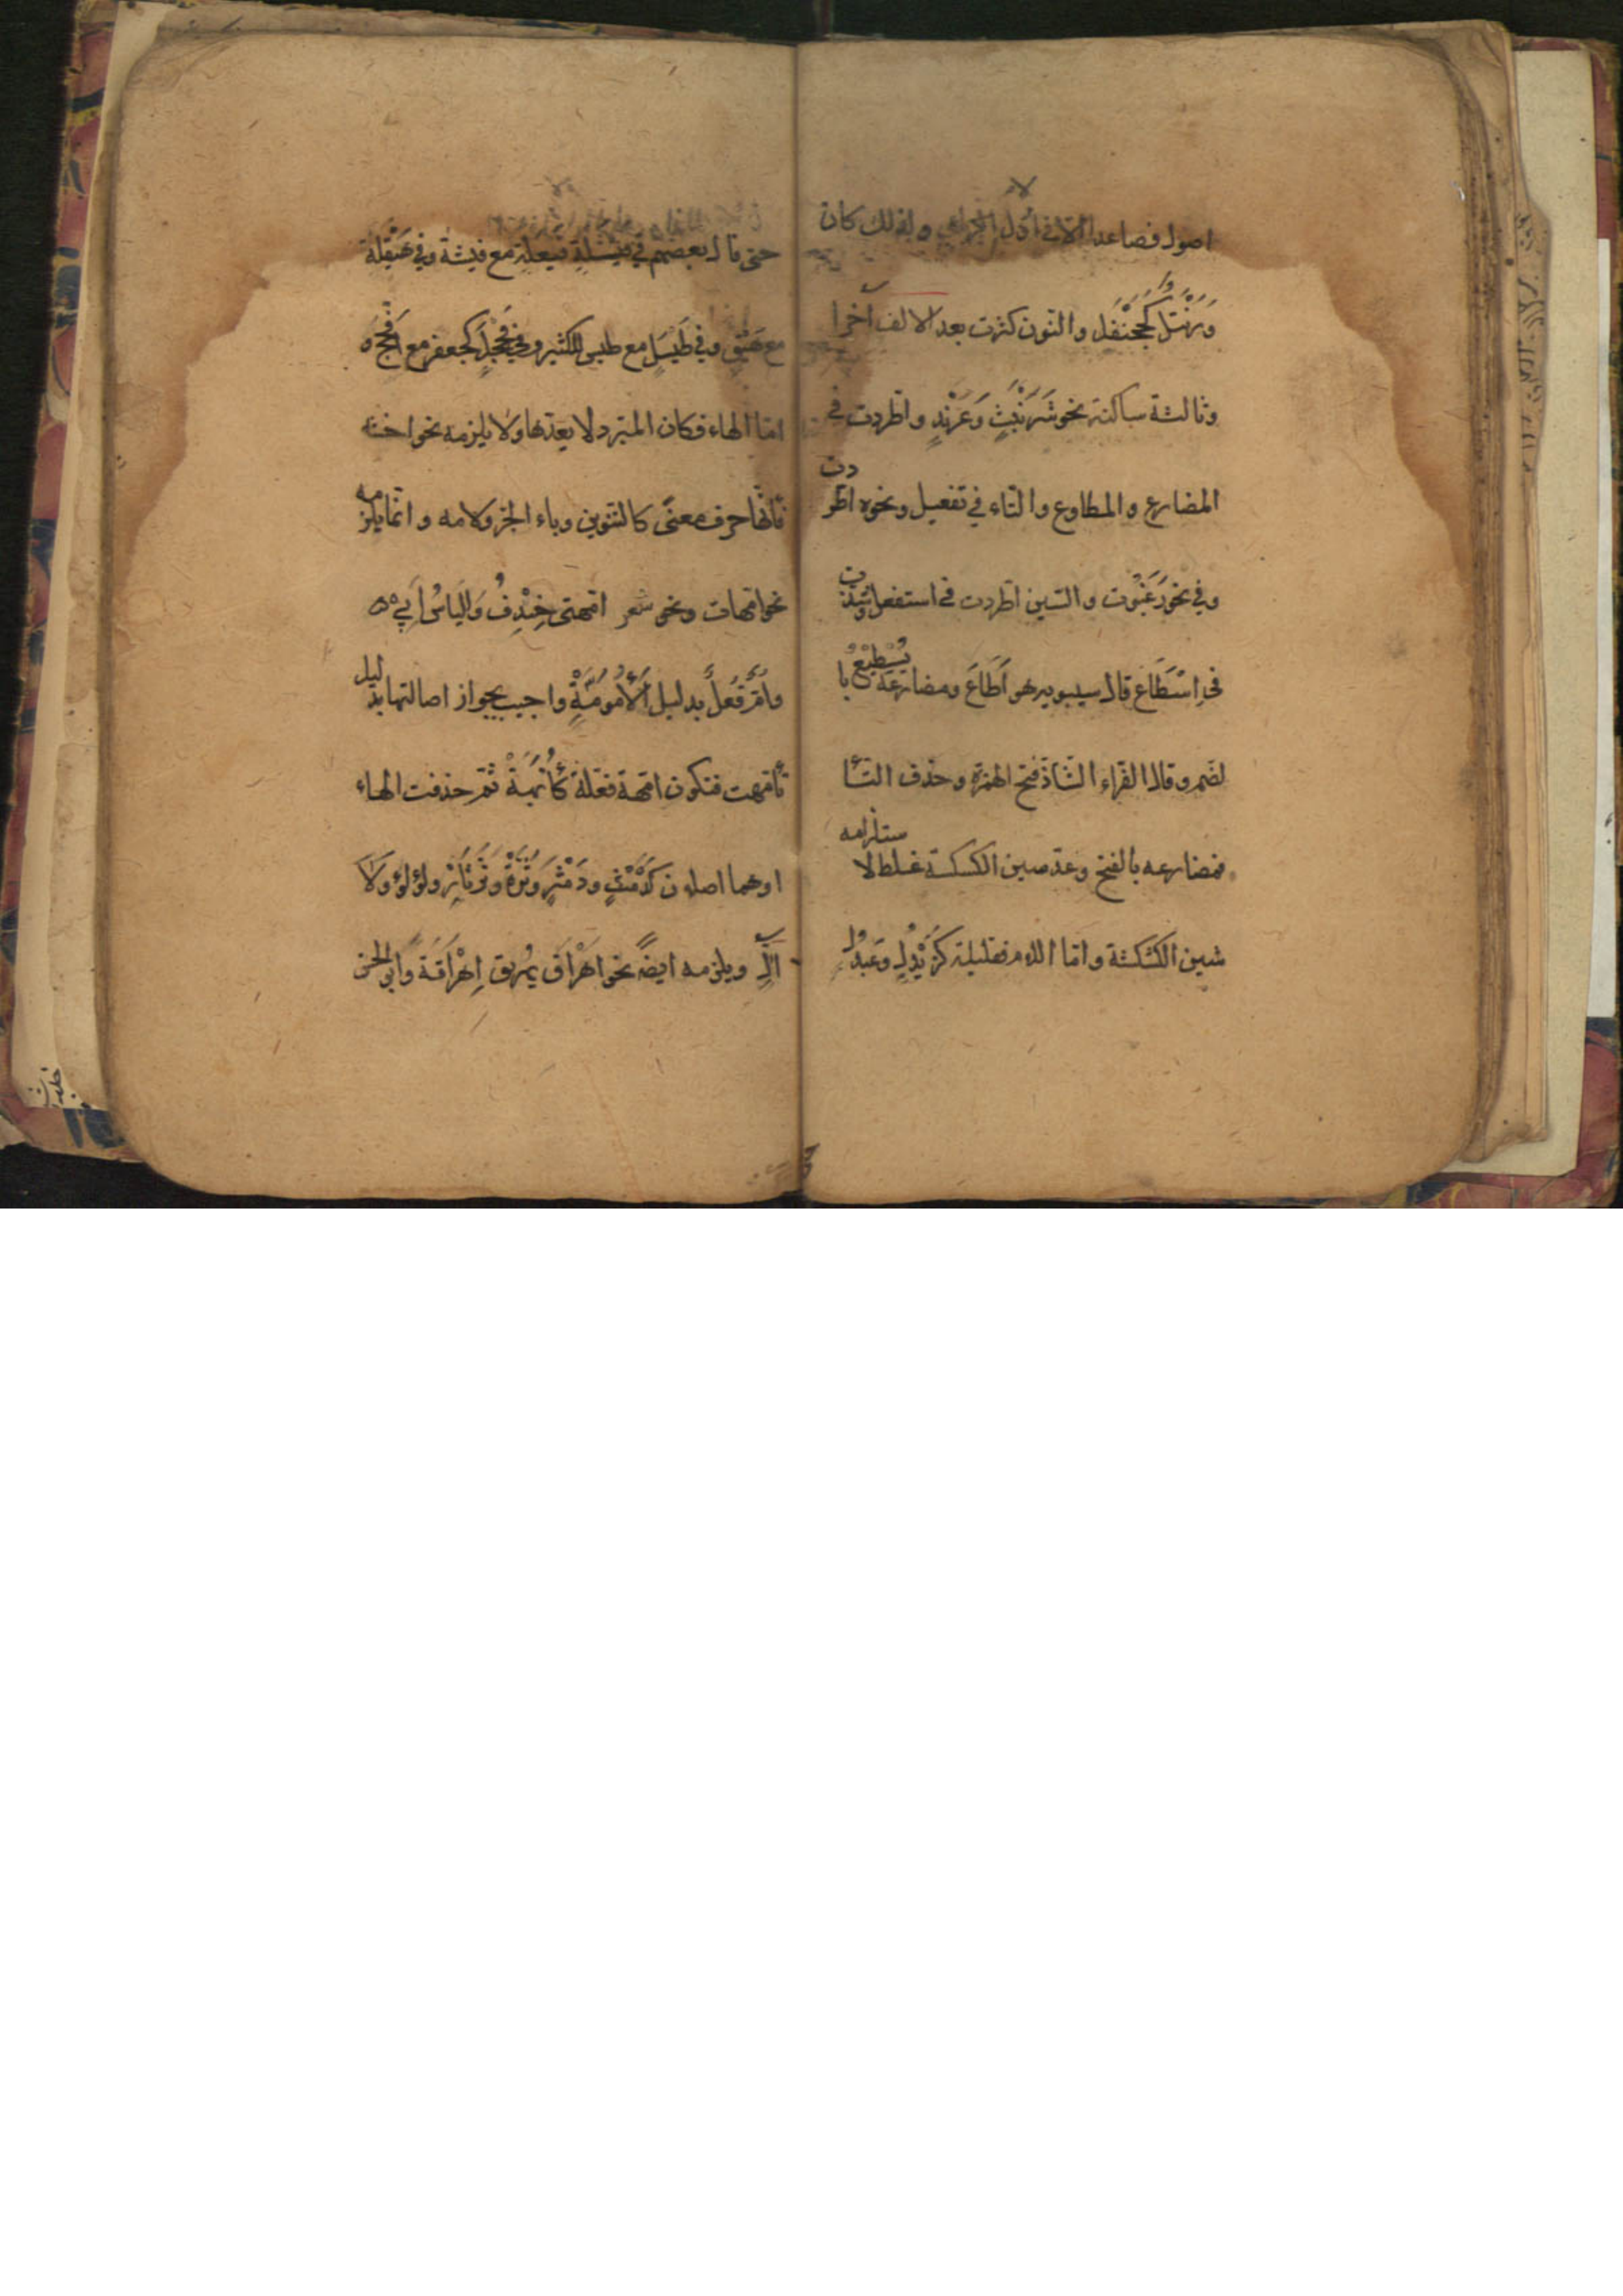 اصول فصاعدا الا في اول الرباعي ولذلك كان
وَرَنْتَلٌ كَجَحَنْفَلٍ والنون كثرت بعد الالف آخرا
وثالثة ساكنة نحو شَرَنْبَثٍ وَعُرُنْدٍ واطردت في
المضارع والمطاوع والتاء في تفعيل ونحوه اطردت
وفي نحو رَغَبُوت والسين اطردت في استفعل وشذت
في اِسْطَاعَ قال سيبويه هو اَطَاعَ ومضارعه يُسْطِيْعُ با
لضم وقال الفراء الشاذ فتح الهمزة وحذف التا
فمضارعه بالفتح وعد سين الكسكسة غلط لاستلزامه
شين الكشكشة واما اللام فقليلة كَزَيْدَلٍ وَعَبْدَلٍ
حتى قال بعضهم في فَيْشَلَةٍ فيعلة مع فيشة وفي هَيْقَلَةٍ
مع هَيْقٍ وفي طَيْسَلٍ مع طيس للكثير وفي فَحْجَلٍ كجعفر مع اَفْحَجَ
اما الهاء فكان المبرد لا يعدها ولا يلزمه نحو اخشه
فانها حرف معنى كالتنوين وباء الجر ولامه وانما يلزمه
نحو امهات ونحو شعر امهتى خِنْدِفُ وَالياسُ اَبِي
وَاُمٌّ فُعْلٌ بدليل اَلْاُمُومَةِ واجيب بجواز اصالتها بدليل
تأمهت فتكون امهة فعلة كَاُبَّهَةٍ ثم حذفت الهاء
او هما اصلان كَدَمِثٍ ودِمَثْرٍ وَثَرَّةٍ وثَرْثَارٍ ولؤلؤ ولَاّلٍ
ويلزمه ايضا نحو اهْرَاقَ يُهْرِيق اِهْرَاقَةً وابو الحسن